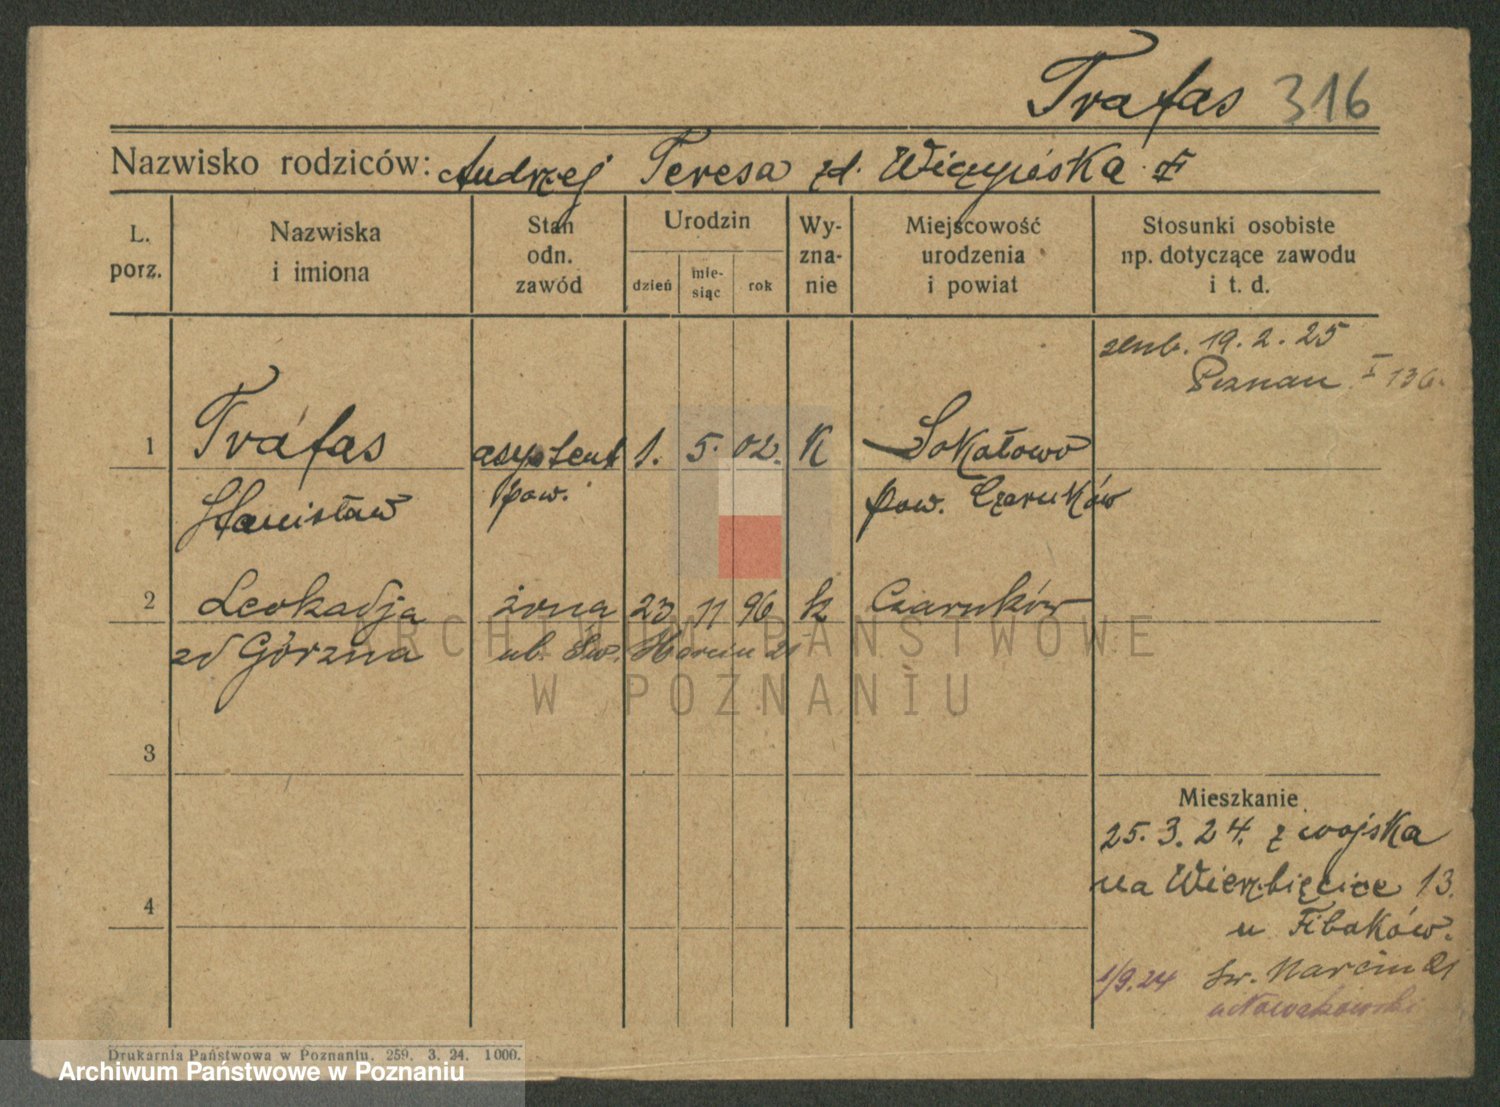 Trafas 316
Nazwisko rodziców: Andrzej Teresa zd.
L. porz.
Nazwiska i imiona
Stan odn. zawód
Urodzin
dzień
mie-siąc
rok
Wy-zna-nie
Miejscowość urodzenia i powiat
Stosunki osobiste np. dotyczące zawodu i t. d.
19. 2. 25
Poznan I
1 Trafas asystent 1. 5. 02. K Sokołowo
Stanisław pow. pow. Czarnków
2 Leokadja żona 23 11 96 k Czarnków
zd Górzna ul. Św. Marcin 21
3
Mieszkanie
25. 3. 24. z wojska
4 na Wierzbięcice 13.
u
1/9.24 Św. Marcin 21
u Nowakowski
ARCHIWUM PAŃSTWOWE
W POZNANIU
Drukarnia Państwowa w Poznaniu. 259. 3. 24. 1000.
Archiwum Państwowe w Poznaniu